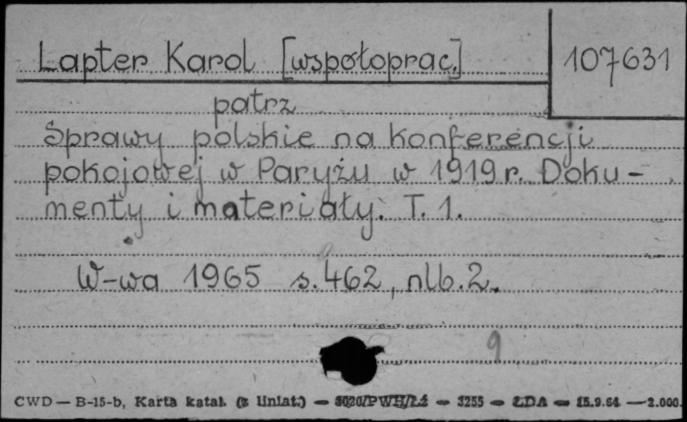 Lapter Karol [współoprac.]
107631
patrz
Sprawy polskie na konferencji
pokojowej w Paryżu w 1919 r. Doku-
menty i materiały. T. 1.
W-wa 1965 s. 462, nlb. 2.
9
CWD — B-15-b, Karta katal. (z liniat.) — — 3255 — ŁDA — 15.9.64 — 2.000.